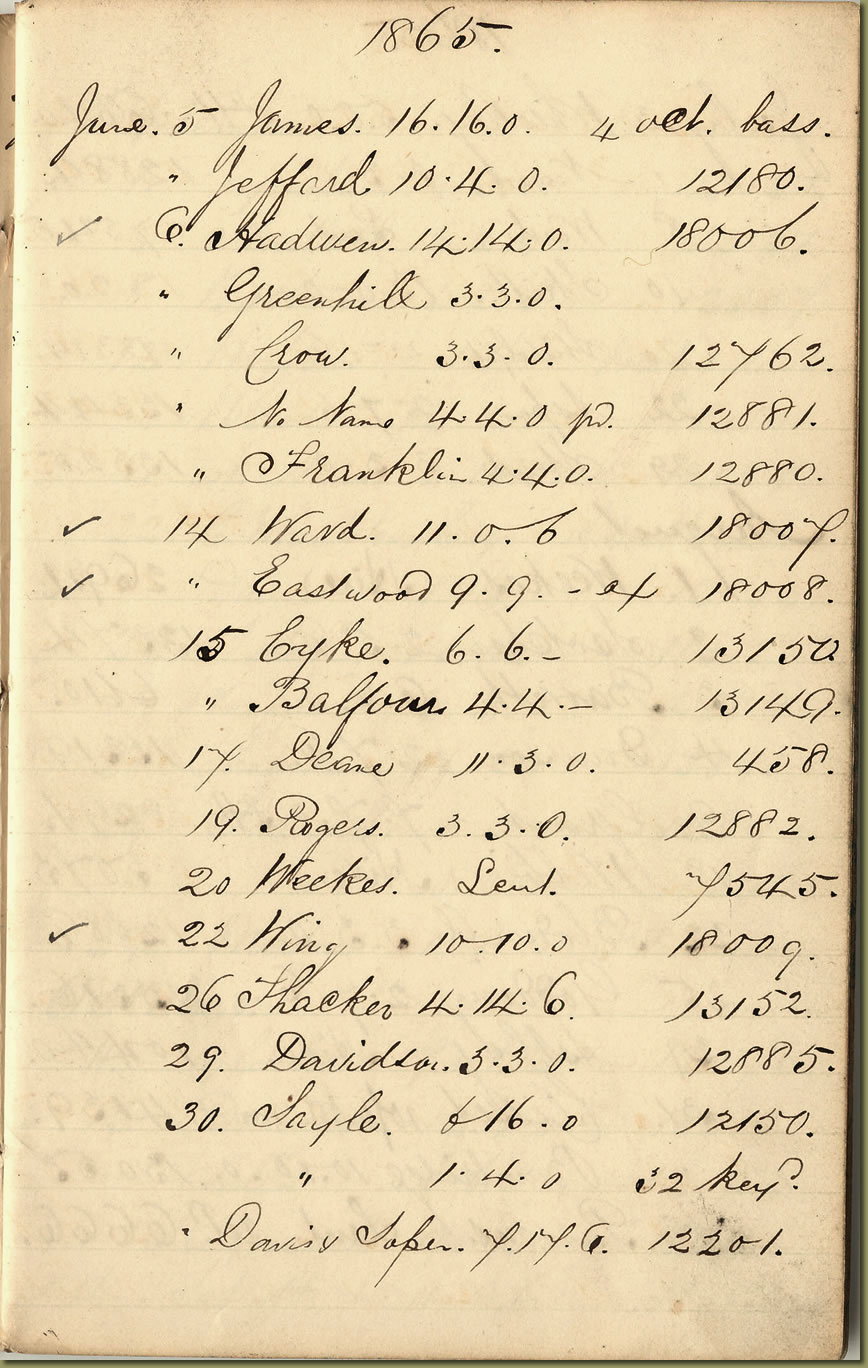 1865.
June. 5 James. 16.16.0. 4 oct. bass.
" Jeffard 10.4.0. 12180.
6. Hadwen. 14.14.0. 18006.
" Greenhill 3.3.0.
" Crow. 3.3.0. 12762.
" No Name 4.4.0 pd. 12881.
" Franklin 4.4.0. 12880.
14 Ward. 11.0.6 18007.
" Eastwood 9.9.- ex 18008.
15 Eyke. 6.6.- 13150
" Balfour 4.4.- 13149.
17. Deane 11.3.0. 458.
19. Rogers. 3.3.0. 12882.
20 Weekes. Lent. 7545.
22 Wing 10.10.0 18009.
26 Thacker 4.14.6. 13152.
29. Davidson. 3.3.0. 12885.
30. Sayle. 16.0 12150.
" 1.4.0 32 keyd.
" Davis & Soper. 7.17.6. 12201.